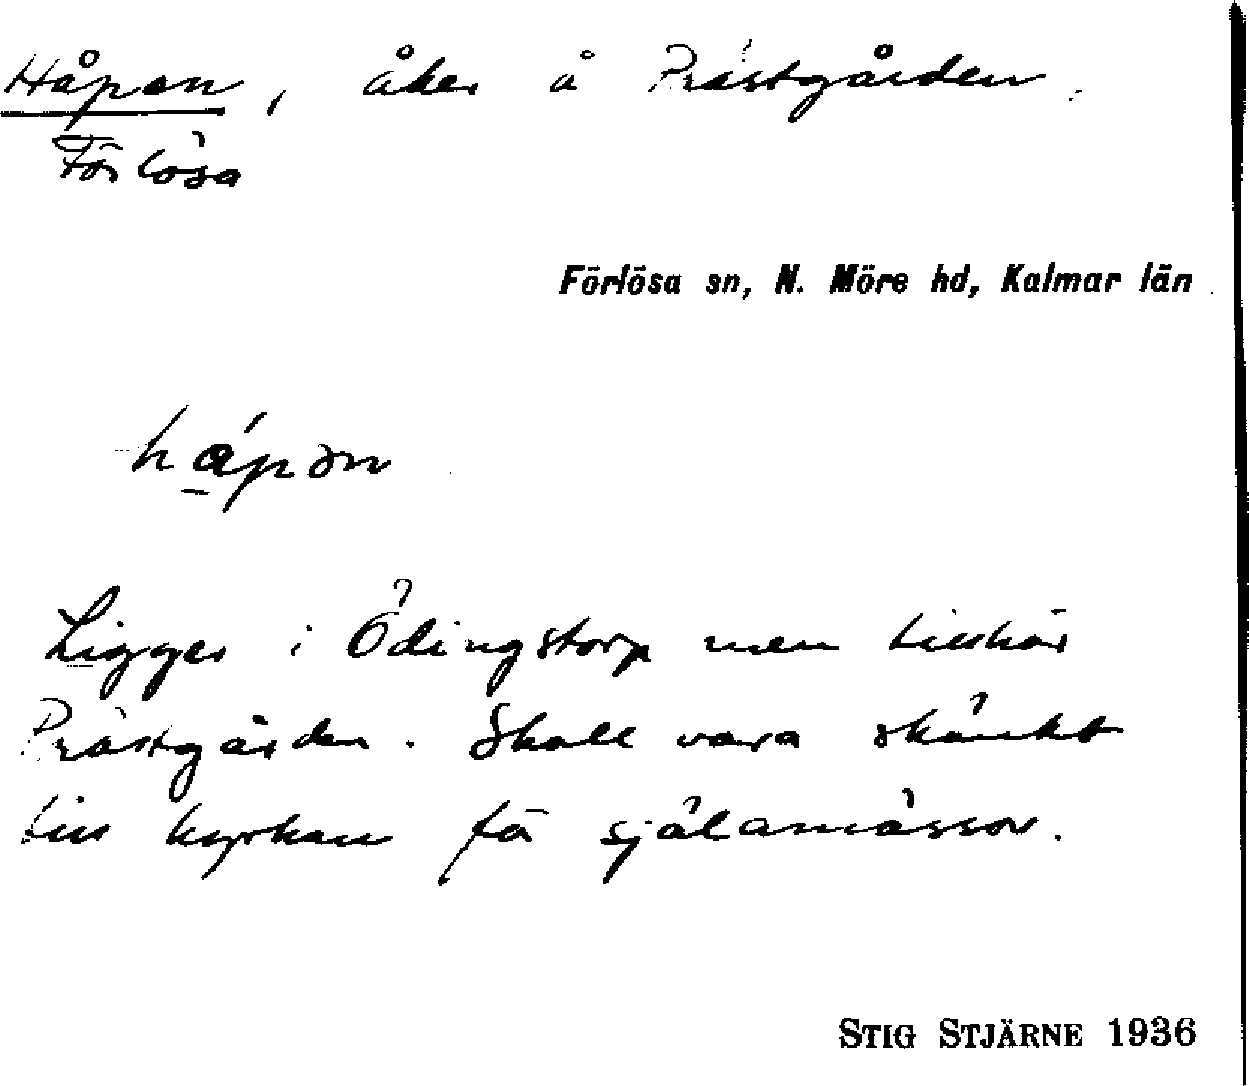 Håpen, åker å Prästgården.
Förlösa
Förlösa sn, N. Möre hd, Kalmar län
hǻpən
Ligger i Ödingstorp men tillhör
Prästgården. Skall vara skänkt
till kyrkan fö själamässor.
STIG STJÄRNE 1936